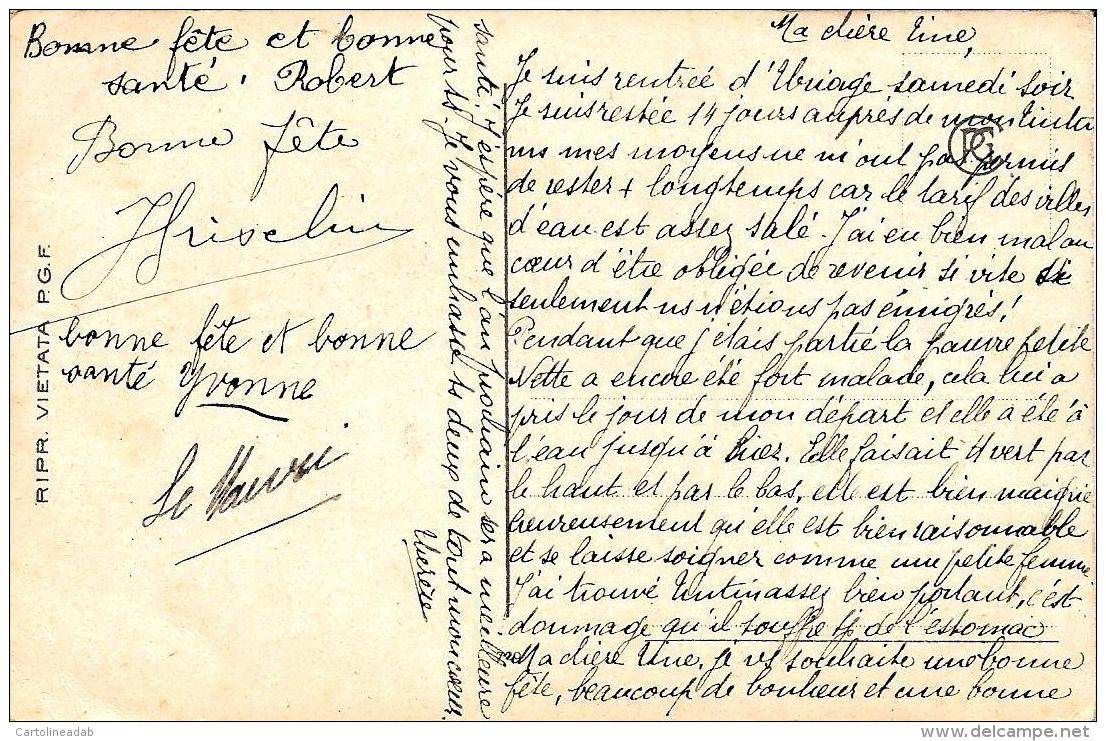 Ma chère Tine,
Je suis rentrée d'Uriage samedi soir
Je suis restée 14 jours auprès de mon Tintin
ns mes moyens ne m'ont pas permis
de rester + longtemps car le tarif des villes
d'eau est assez salé. J'ai eu bien mal au
cœur d'être obligée de revenir si vite si
seulement ns n'étions pas émigrés!
Pendant que j'étais partie la pauvre petite
Nette a encore été fort malade, cela lui a
pris le jour de mon départ et elle a été à
l'eau jusqu'à hier. Elle faisait vert par
le haut et par le bas, elle est bien maigrie
heureusement qu'elle est bien raisonnable
et se laisse soigner comme une petite femme
J'ai trouvé Tintin assez bien portant, c'est
dommage qu'il souffre tjs de l'estomac
Ma chère Tine, je vs souhaite une bonne
fête, beaucoup de bonheur et une bonne
santé. J'espère que l'an prochain sera meilleure
pour ts. Je vous embrasse ts deux de tout mon cœur.
Thérèse
Bonne fête et bonne
santé. Robert
Bonne fête
bonne fête et bonne
santé Yvonne
RIPR. VIETATA P.G.F.
PG
Cartolineadab
delcampe.net